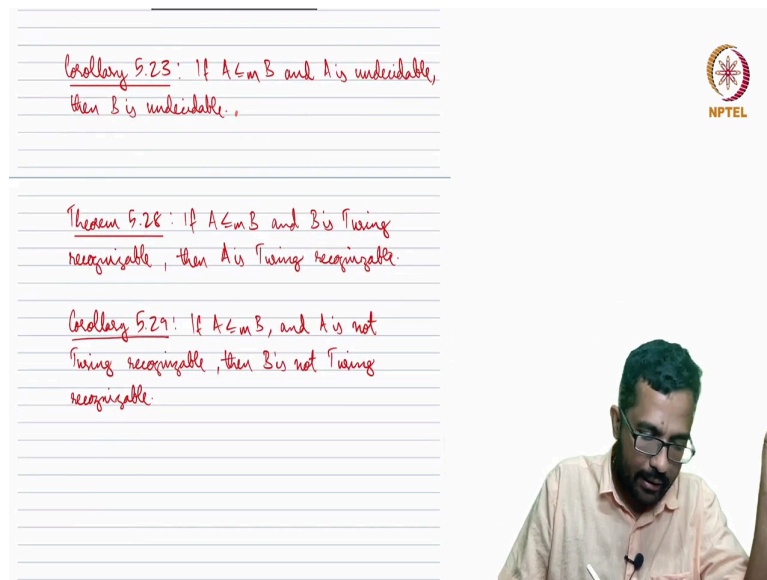 Corollary 5.23: If A ≤m B and A is undecidable,
then B is undecidable.
Theorem 5.28: If A ≤m B and B is Turing
recognizable, then A is Turing recognizable.
Corollary 5.29: If A ≤m B, and A is not
Turing recognizable, then B is not Turing
recognizable.
NPTEL